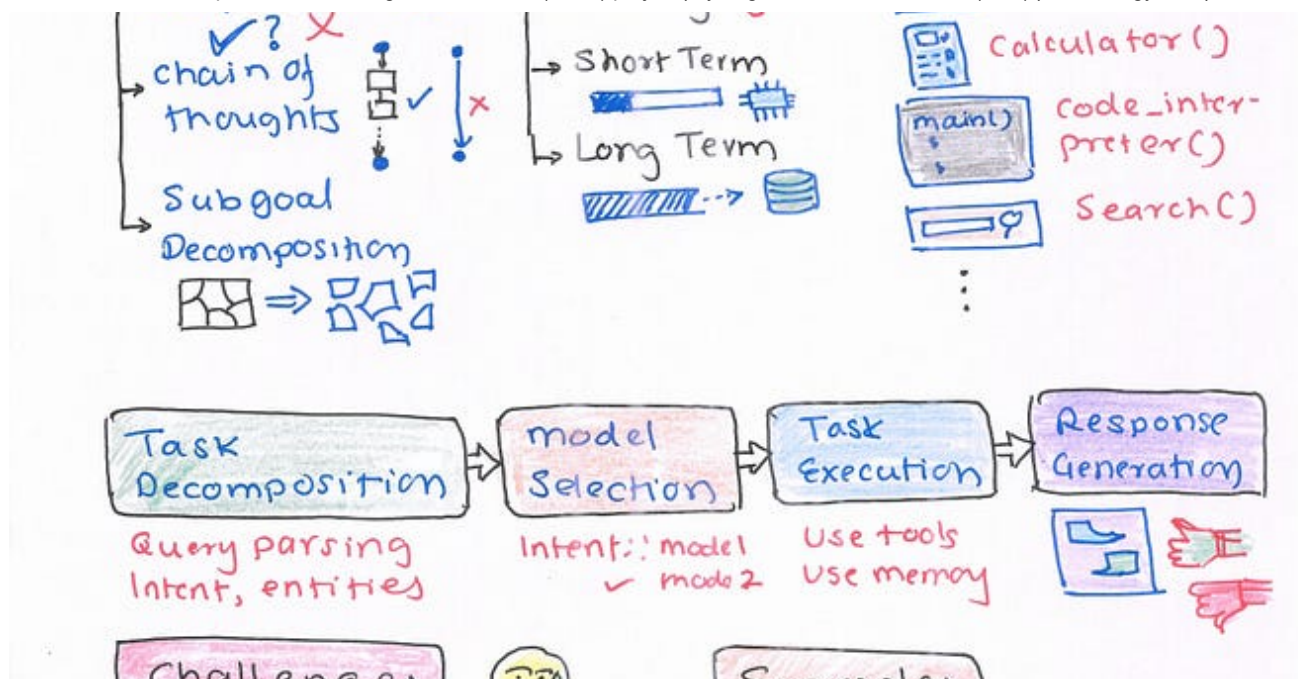 chain of
thoughts
Subgoal
Decomposition
Short Term
Long Term
Calculator()
main()
code_inter-
preter()
Search()
Task
Decomposition
Query parsing
Intent, entities
model
Selection
Intent:: model
mode2
Task
Execution
Use tools
Use memoy
Response
Generation